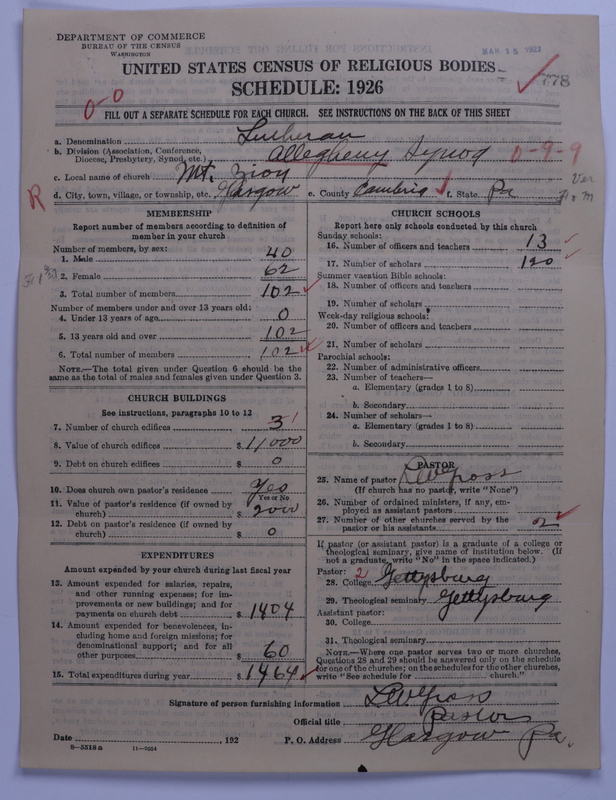 DEPARTMENT OF COMMERCE
BUREAU OF THE CENSUS
WASHINGTON
MAR 15 1927
UNITED STATES CENSUS OF RELIGIOUS BODIES
778
SCHEDULE: 1926
0-0
FILL OUT A SEPARATE SCHEDULE FOR EACH CHURCH. SEE INSTRUCTIONS ON THE BACK OF THIS SHEET
a. Denomination Lutheran
b. Division (Association, Conference, Diocese, Presbytery, Synod, etc.) Allegheny Synod 0-9-9
c. Local name of church Mt. Zion
d. City, town, village, or township, etc. Glasgow e. County Cambria f. State Pa
R
MEMBERSHIP
Report number of members according to definition of member in your church
Number of members, by sex:
1. Male 40
2. Female 62
3. Total number of members 102
Number of members under and over 13 years old:
4. Under 13 years of age 0
5. 13 years old and over 102
6. Total number of members 102
NOTE.—The total given under Question 6 should be the same as the total of males and females given under Question 3.
CHURCH BUILDINGS
See instructions, paragraphs 10 to 12
7. Number of church edifices 1
8. Value of church edifices $ 11,000
9. Debt on church edifices $ 0
10. Does church own pastor's residence Yes
Yes or No
11. Value of pastor's residence (if owned by church) $ 2000
12. Debt on pastor's residence (if owned by church) $ 0
EXPENDITURES
Amount expended by your church during last fiscal year
13. Amount expended for salaries, repairs, and other running expenses; for improvements or new buildings; and for payments on church debt $ 1404
14. Amount expended for benevolences, including home and foreign missions; for denominational support; and for all other purposes $ 60
15. Total expenditures during year $ 1464
CHURCH SCHOOLS
Report here only schools conducted by this church
Sunday schools:
16. Number of officers and teachers 13
17. Number of scholars 120
Summer vacation Bible schools:
18. Number of officers and teachers
19. Number of scholars
Week-day religious schools:
20. Number of officers and teachers
21. Number of scholars
Parochial schools:
22. Number of administrative officers
23. Number of teachers—
a. Elementary (grades 1 to 8)
b. Secondary
24. Number of scholars—
a. Elementary (grades 1 to 8)
b. Secondary
PASTOR
25. Name of pastor
(If church has no pastor, write "None")
26. Number of ordained ministers, if any, employed as assistant pastors
27. Number of other churches served by the pastor or his assistants 2
If pastor (or assistant pastor) is a graduate of a college or theological seminary, give name of institution below. (If not a graduate, write "No" in the space indicated.)
Pastor: 2
28. College Gettysburg
29. Theological seminary Gettysburg
Assistant pastor:
30. College
31. Theological seminary
NOTE.—Where one pastor serves two or more churches, Questions 28 and 29 should be answered only on the schedule for one of the churches; on the schedules for the other churches, write "See schedule for church."
Signature of person furnishing information
Official title Pastor
Date , 192 P. O. Address Glasgow Pa.
8-5518 a 11-9054